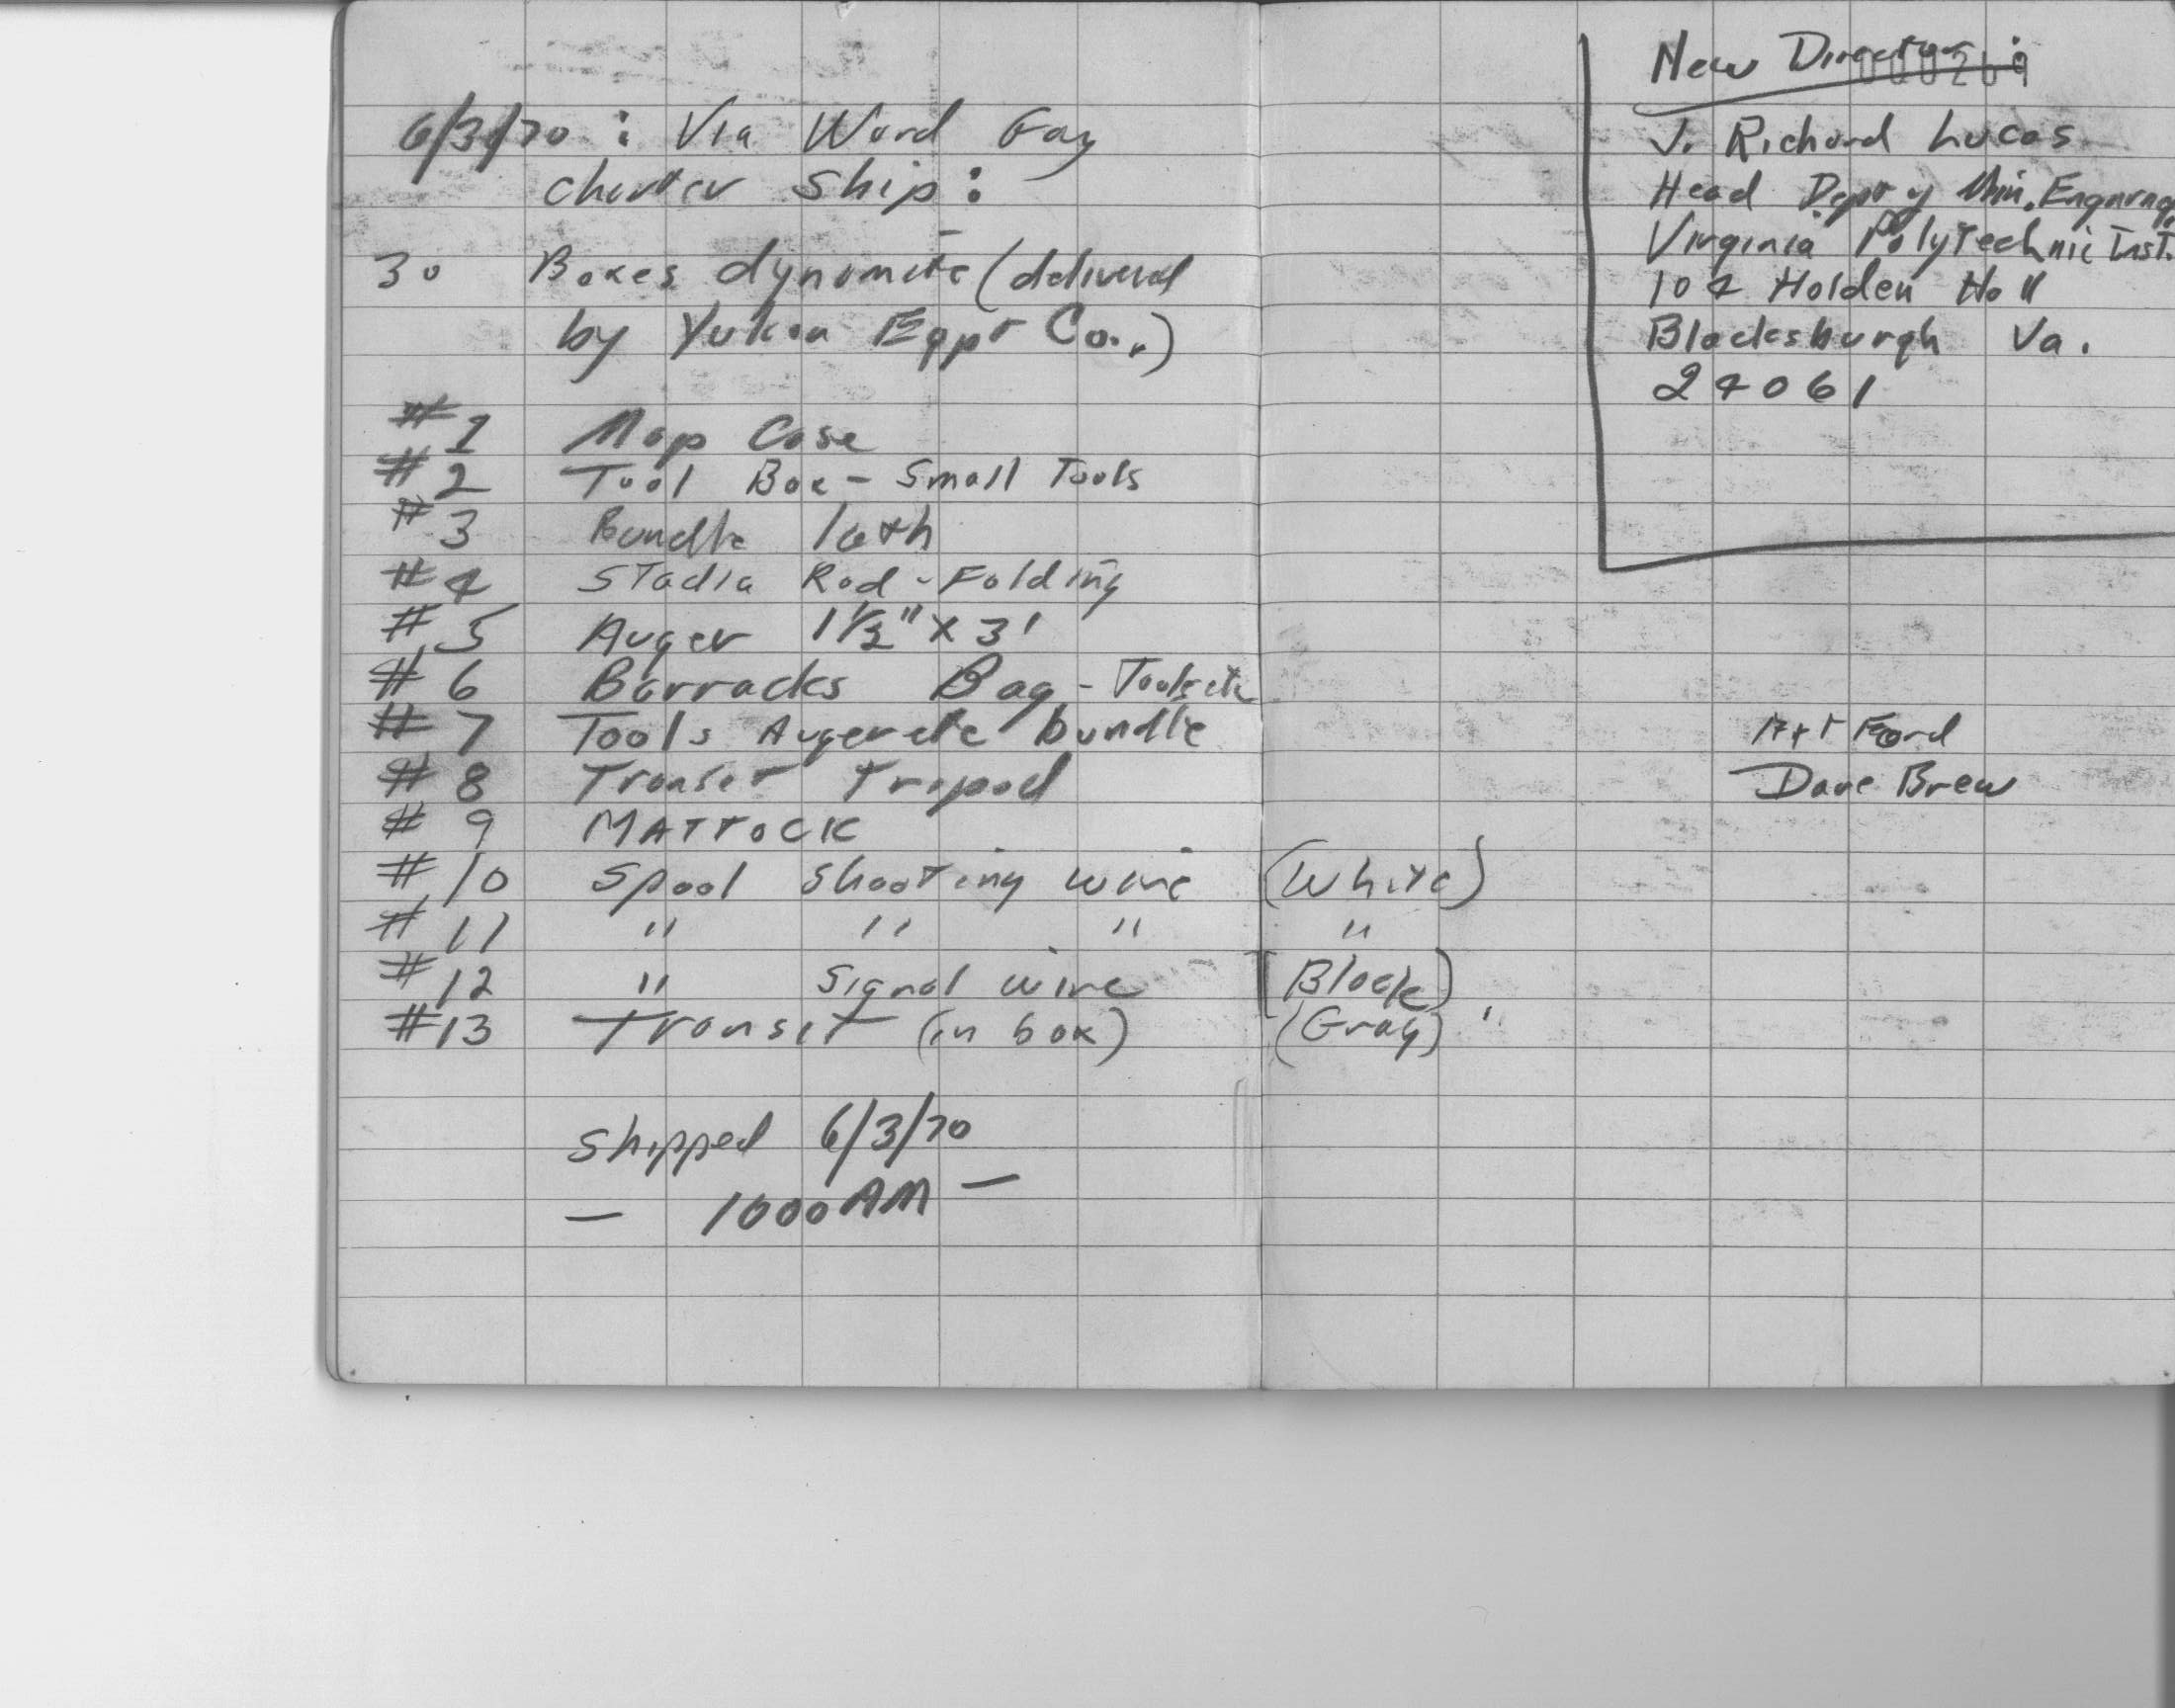 6/3/70 : Via Ward Gay
charter ship :
30 Boxes dynamite (delivered
by Yukon Eqpt Co.,)
#1 Map Case
#2 Tool Box - Small Tools
#3 Bundle lath
#4 Stadia Rod - Folding
#5 Auger 1 1/2" x 3'
#6 Barracks Bag - Tools etc
#7 Tools Auger etc bundle
#8 Transit Tripod
#9 MATTOCK
#10 Spool Shooting wire (White)
#11 " " " "
#12 " Signal wire [Black)
#13 Transit (in box) (Gray)
Shipped 6/3/70
— 1000 AM —
New Director :
000269
J. Richard Lucas
Head Dept of Min. Engnrng
Virginia Polytechnic Inst.
104 Holden Hall
Blacksburgh Va.
24061
Art Ford
Dave Brew